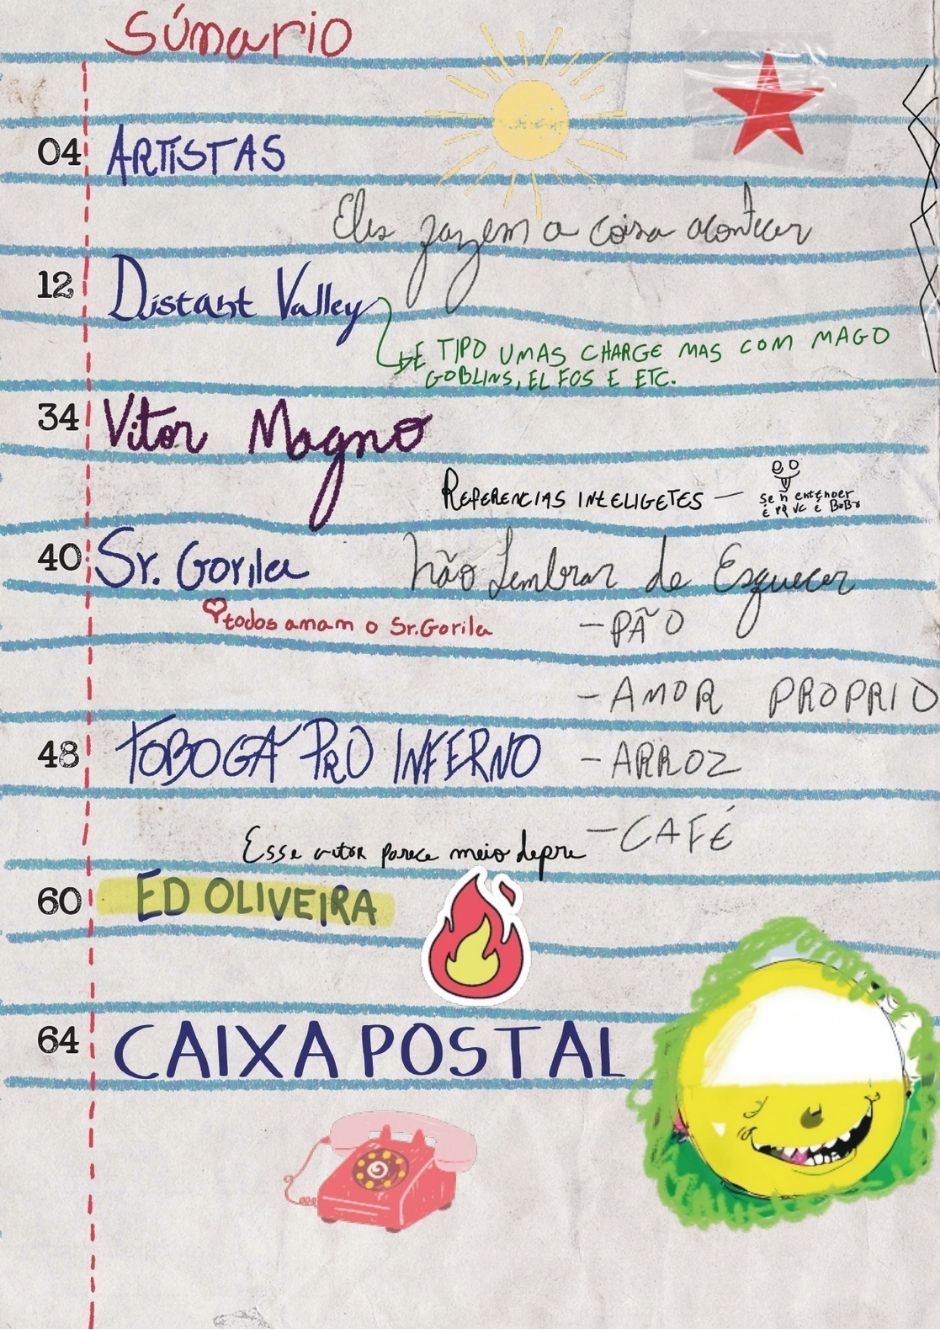 Súmario
04 ARTISTAS
Eles fazem a coisa acontecer
12 Distant Valley
É TIPO UMAS CHARGE MAS COM MAGO
GOBLINS, ELFOS E ETC.
34 Vitor Magno
REFERENCIAS INTELIGETES —
se ñ entender
é pq vc é BoBo
40 Sr. Gorila
todos amam o Sr. Gorila
Não Lembrar de Esquecer
- PÃO
- AMOR PROPRIO
48 TOBOGÃ PRO INFERNO
- ARROZ
- CAFÉ
Esse autor parece meio depre
60 ED OLIVEIRA
64 CAIXA POSTAL